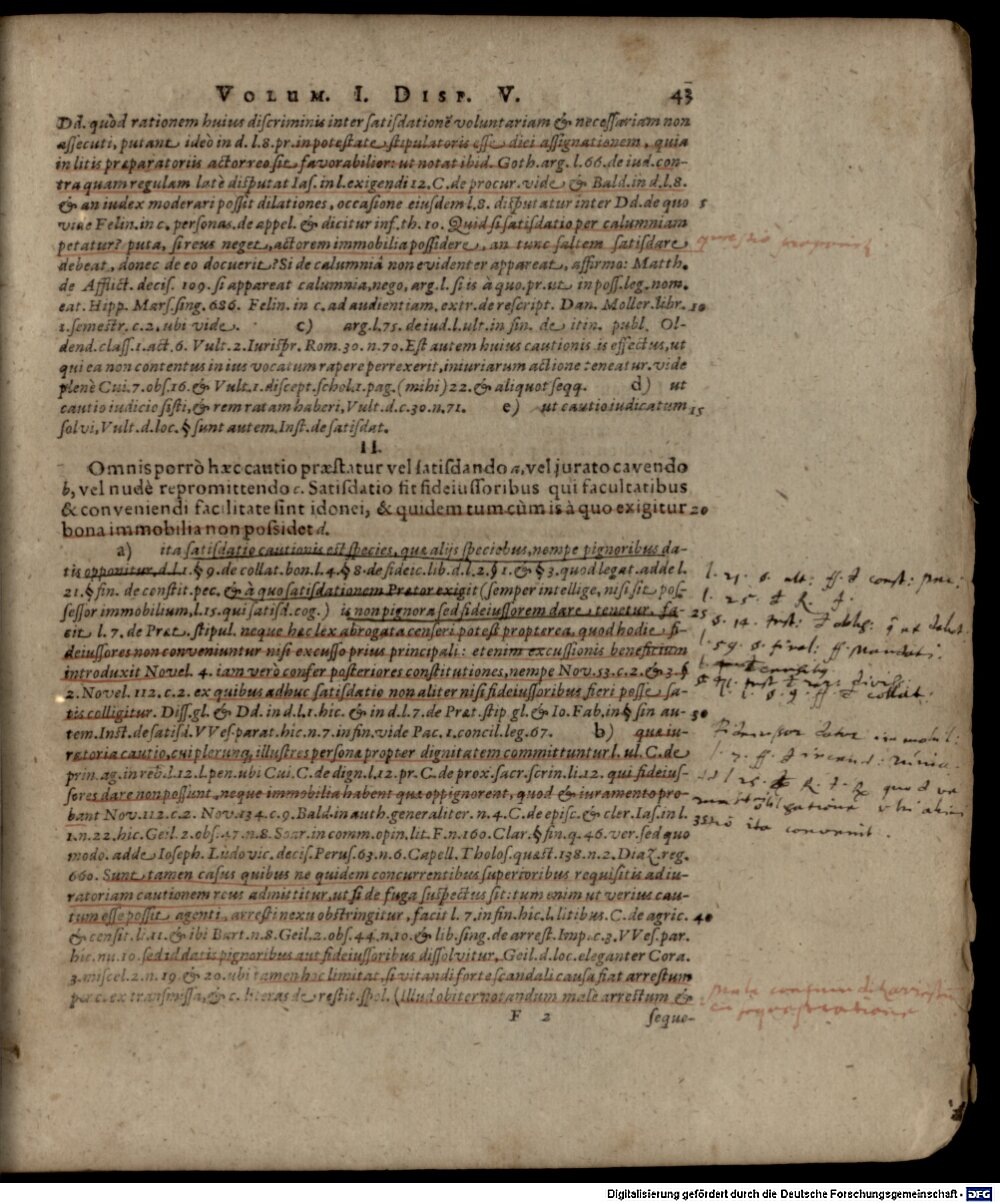 VOLUM. I. DISP. V. 43
Dd. quòd rationem huius discriminis inter satisdationẽ voluntariam & necessariam non
assecuti, putant ideò in d. l. 8. pr. in potestate stipulatoris esse diei assignationem, quia
in litis præparatoriis actor reo sit favorabilior: ut notat ibid. Goth. arg. l. 66. de iud. con-
tra quam regulam latè disputat Ias. in l. exigendi 12. C. de procur. vide & Bald. in d. l. 8.
& an iudex moderari possit dilationes, occasione eiusdem l. 8. disputatur inter Dd. de quo 5
vide Felin. in c. personas. de appel. & dicitur inf. th. 10. Quid si satisdatio per calumniam
petatur? puta, si reus neget, actorem immobilia possidere, an tunc saltem satisdare
debeat, donec de eo docuerit? Si de calumniâ non evidenter appareat, affirmo: Matth.
de Afflict. decis. 109. si appareat calumnia, nego, arg. l. si is à quo. pr. ut in poss. leg. nom.
eat. Hipp. Mars. sing. 686. Felin. in c. ad audientiam, extr. de rescript. Dan. Moller. libr. 10
1. semestr. c. 2. ubi vide. c) arg. l. 75. de iud. l. ult. in fin. de itin. publ. Ol-
dend. class. 1. act. 6. Vult. 2. Iurispr. Rom. 30. n. 70. Est autem huius cautionis is effectus, ut
qui ea non contentus in ius vocatum rapere perrexerit, iniuriarum actione teneatur. vide
plenè Cui. 7. obs. 16. & Vult. 1. discept. schol. 1. pag. (mihi) 22. & aliquot seqq. d) ut
cautio iudicio sisti, & rem ratam haberi, Vult. d. c. 30. n. 71. e) ut cautio iudicatum 15
solvi, Vult. d. loc. § sunt autem. Inst. de satisdat.
II.
Omnis porrò hæc cautio præstatur vel satisdando a, vel jurato cavendo
b, vel nudè repromittendo c. Satisdatio fit fideiussoribus qui facultatibus
& conveniendi facilitate sint idonei, & quidem tum cùm is à quo exigitur 20
bona immobilia non possidet d.
a) ita satisdatio cautionis est species, quæ alijs speciebus, nempe pignoribus da-
tis opponitur, d. l. 1. § 9. de collat. bon. l. 4. § 8. de fideic. lib. d. l. 2. § 1. & § 3. quod legat. adde l.
21. § fin. de constit. pec. & à quo satisdationem Prætor exigit (semper intellige, nisi sit pos-
sessor immobilium, l. 15. qui satisd. cog.) is non pignora sed fideiussorem dare tenetur. fa- 25
cit l. 7. de Præt. stipul. neque hæc lex abrogata censeri potest propterea, quod hodie fi-
deiussores non conveniuntur nisi excusso prius principali: etenim excussionis beneficium
introduxit Novel. 4. iam verò confer posteriores constitutiones, nempe Nov. 53. c. 2. & 3. §
2. Novel. 112. c. 2. ex quibus adhuc satisdatio non aliter nisi fideiussoribus fieri posse sa-
tis colligitur. Diss. gl. & Dd. in d. l. 1. hic. & in d. l. 7. de Præt. stip gl. & Io. Fab. in § fin au- 30
tem. Inst. de satisd. VVes. parat. hic. n. 7. in fin. vide Pac. 1. concil. leg. 67. b) quæ iu-
ratoria cautio, cui plerunq; illustres personæ propter dignitatem committuntur l. ul. C. de
prin. ag. in reb. l. 12. l. pen. ubi Cui. C. de dign. l. 12. pr. C. de prox. sacr. scrin. li. 12. qui fideius-
sores dare non possunt, neque immobilia habent quæ oppignorent, quod & iuramento pro-
bant Nov. 112. c. 2. Nov. 134. c. 9. Bald. in auth. generaliter. n. 4. C. de episc. & cler. Ias. in l. 35
1. n. 22. hic. Geil. 2. obs. 47. n. 8. Soar. in comm. opin. lit. F. n. 160. Clar. § fin. q. 46. ver. sed quo
modo. adde Ioseph. Ludovic. decis. Perus. 63. n. 6. Capell. Tholos. quæst. 138. n. 2. Diaz. reg.
660. Sunt tamen casus quibus ne quidem concurrentibus superioribus requisitis ad iu-
ratoriam cautionem reus admittitur, ut si de fuga suspectus sit: tum enim ut verius cau-
tum esse possit agenti, arresti nexu obstringitur, facit l. 7. in fin. hic. l. litibus. C. de agric. 40
& censit. li. 11. & ibi Bart. n. 8. Geil. 2. obs. 44. n. 10. & lib. sing. de arrest. Imp. c. 3. VVes. par.
hic. nu. 10. sed id datis pignoribus aut fideiussoribus dissolvitur, Geil. d. loc. eleganter Cora.
3. miscel. 2. n. 19. & 20. ubi tamen hoc limitat, si vitandi forte scandali causa fiat arrestum
per c. ex transmissa, & c. literas de restit. spol. (Illud obiter notandum malè arrestum &
F 2 seque-
l. 21. §. ult: ff. d const: pec:
l. 25. d R. J.
l. 59. §. final: ff. mandati.
quod
ita convenit.
Digitalisierung gefördert durch die Deutsche Forschungsgemeinschaft - DFG